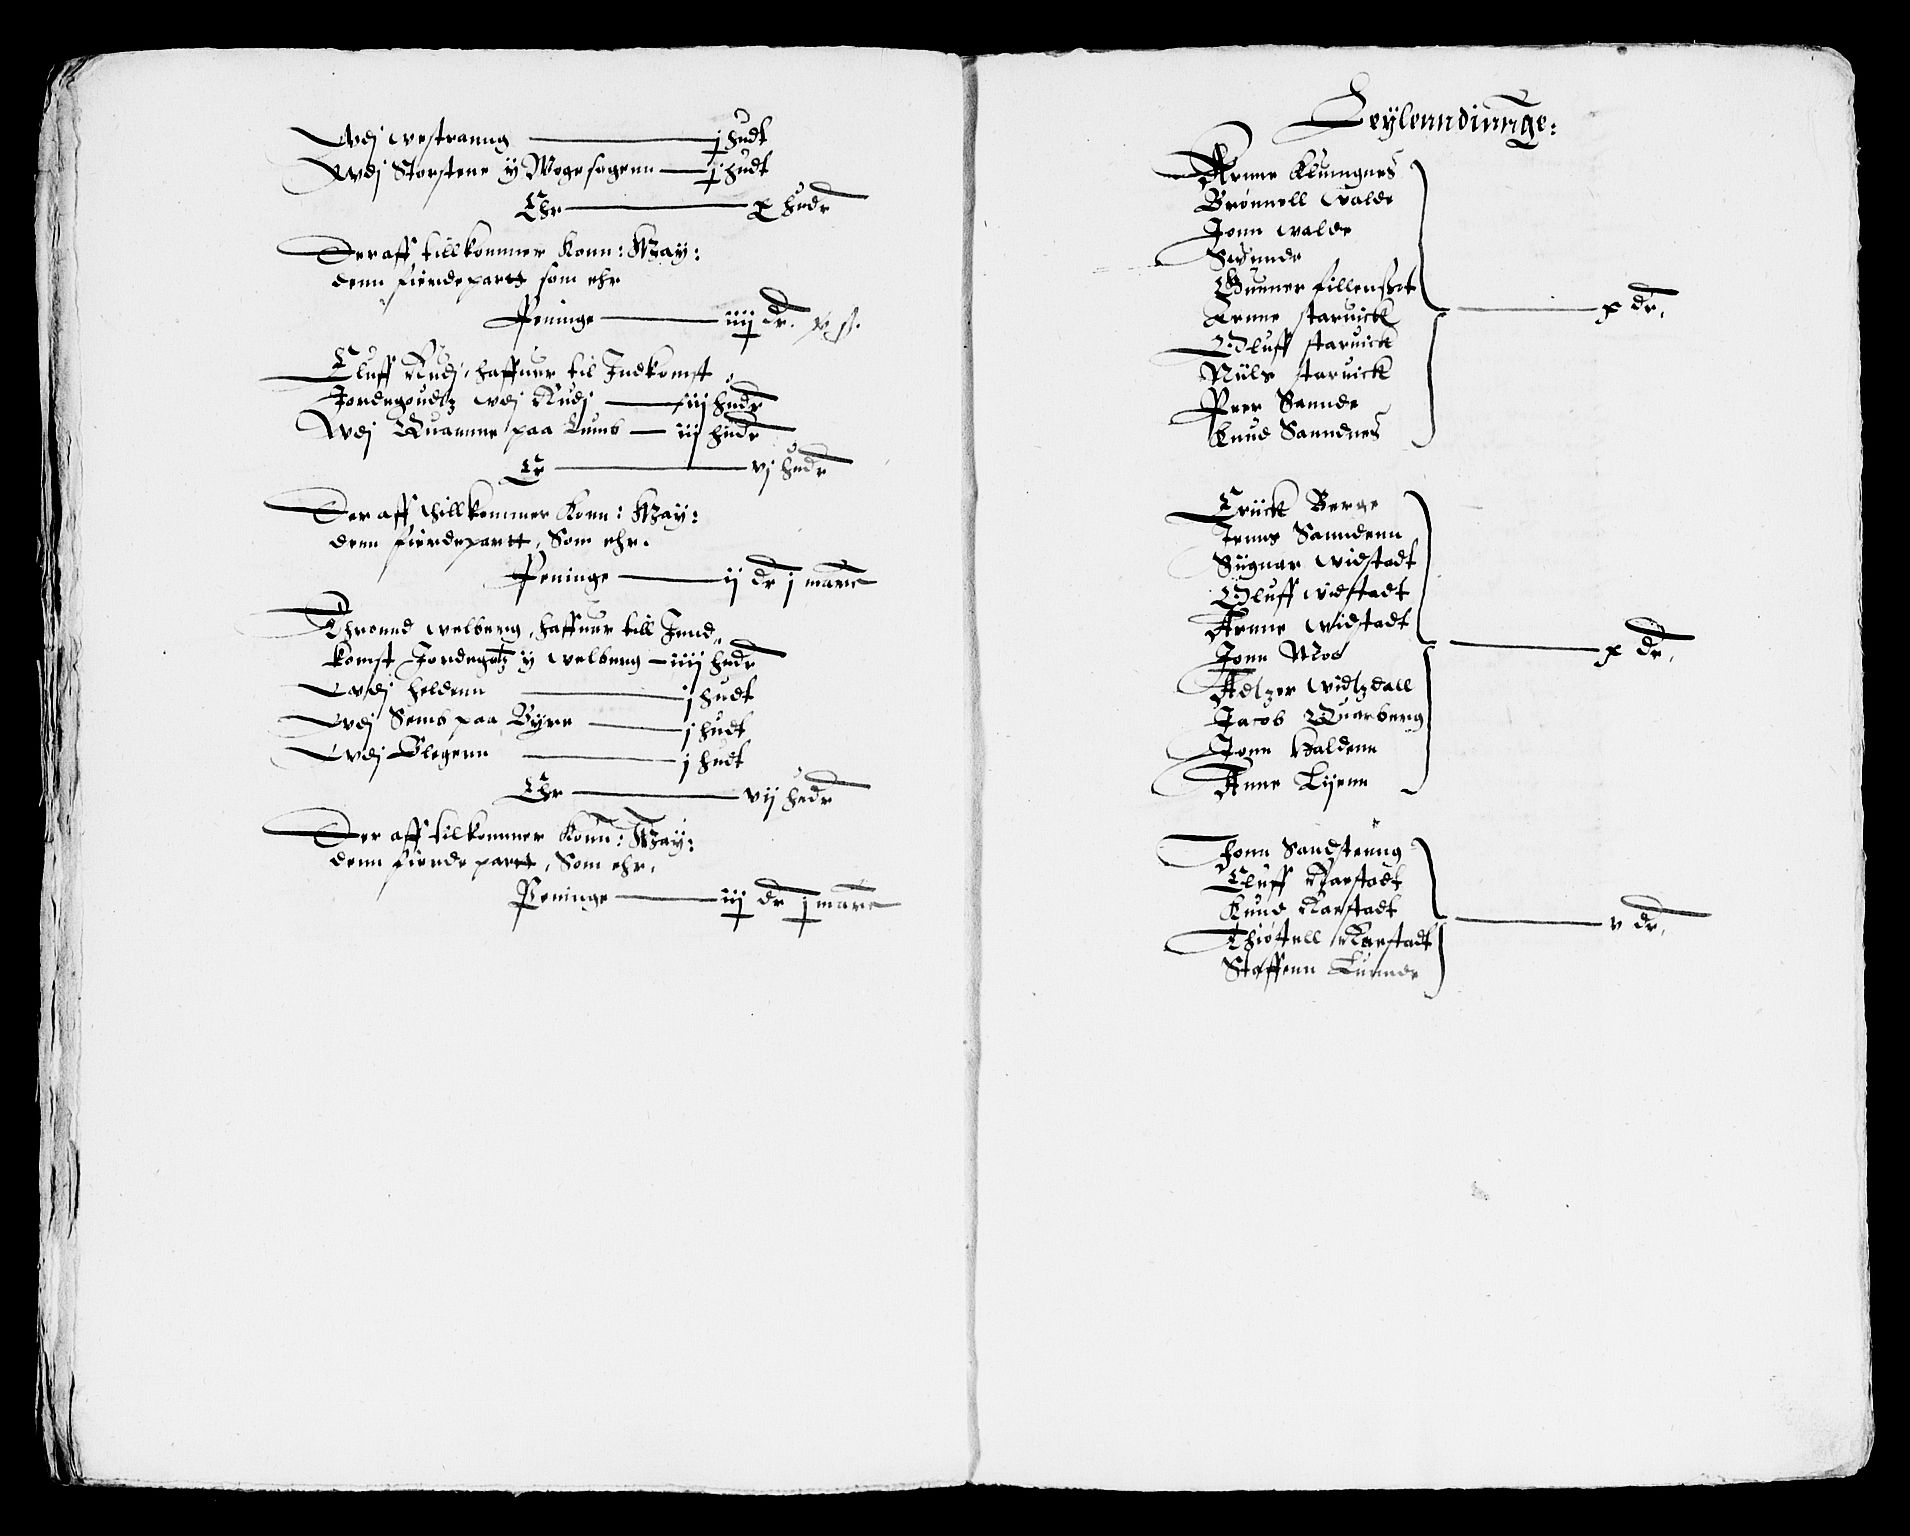 Wdj westranng — j hudt
Wdj Storstene y Wogesogenn — j hudt
Ehr — x hudr
Der aff tillkommer Konn: May:
denn fierdepartt som ehr
Peninge — iiij dr. x ß.
Eluff Rudj, haffuer til Indkomst
Jordegoudtz wdj Rudj — iij hudr
Wdj Quamme paa Lums — iij hudr
Er — vj hudr
Der aff thillkommer Konn: May:
denn fierdepartt, Som ehr.
Peninge — ij dr j marc
Thronnd welberg, haffuer till Jnnd,,
komst Jordegotz y welberg — iiij hudr
Wdj heldenn — j hudt
Wdj Sems paa Byre — j hudt
Wdj Slegenn — j hudt
Ehr — vij hudr
Der aff tilkommer Konn: May:
denn fierde partt, Som ehr.
Peninge — iij dr j marc
Leylenndinnge:
Arnne Klumgnes
Brønnell Walde
Jonn walde
Gunner fillenshot
Arnne staruick
Oluff staruick
Niils staruick
Peer Sannde
Knud Sanndnes
x dr.
Erick Berge
Jenns Sanndenn
Sügnar widstadt
Oluff widstadt
Arnne widstadt
Jonn Moe
Adtzer widtzdall
Jacob Quarberg
Jonn Haldenn
Anne Lijenn
x dr.
Thonn Sandstenng
Eluff Karstadt
Knud Karstadt
Thiøstell Karstadt
Staffenn Lunnde
v dr.